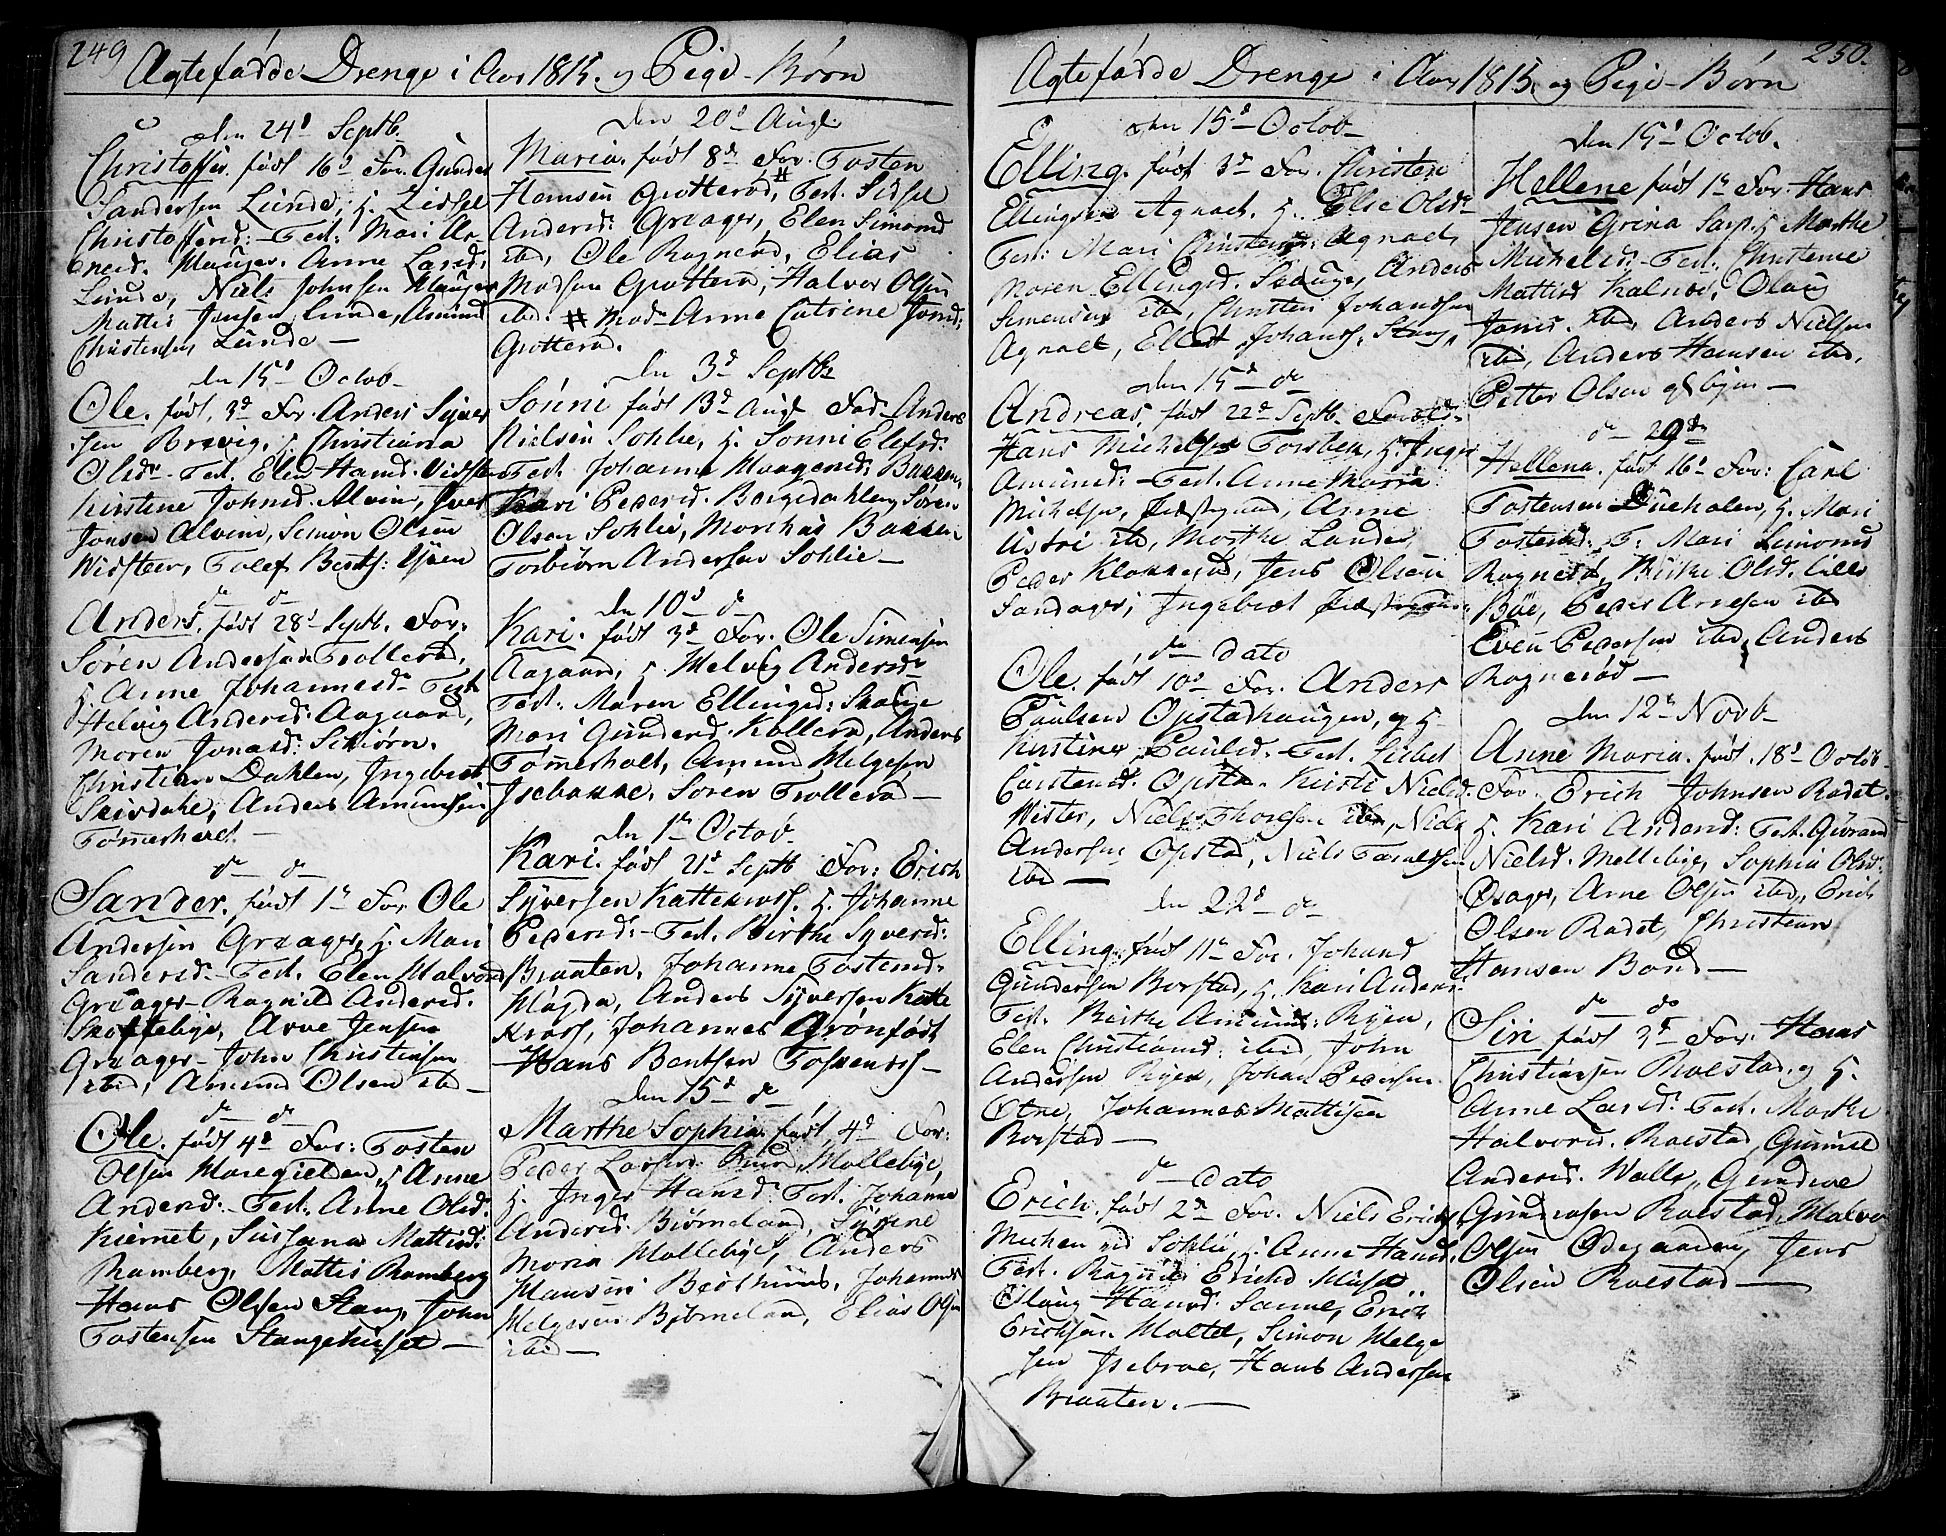 249
Agtefødde Drenge i Aar 1815. og Pige-Børn
den 24d Septb.
Christoffer. født 16d For. Gunder
Sandersen Lunde, H. Zidsel
Christofferd:- Test: Mari Ar
neid. Mauger. Anne Larsd:
Lunde, Niels Johnsen Mauger
Mattis Jensen Lunde, Amund
Christensen Lunde —
den 15d Octob-
Ole. født. 3d For. Anders Syver
sen Brevig. H. Christiana
Olsdr- Test. Elen Hansd. Vidsteen
Kirstine Johnsd. Alvim, Iver
Jonsen Alvim, Simon Olsen
Widsteer, Tolef Benths: Ryen
do — do
Anders. født 28d Septb. For:
Søren Andersen Trollerød,
H. Anne Johannesdr Test
Helvig Andersd: Aagaard,
Moren Jonasd: Schiørn.
Christian Dahlen, Ingebret
Seisdahl, Anders Amundsen
Tømerholt. —
do — do
Sander. født 1ste For. Ole
Andersen Graager, H. Mari
Sandersd.- Test. Elen Halvord
Graager- Ragnild Andersd.
Skoffebye, Arve Jensen
Graager- John Christensen
ibid, Amund Olsen ibd —
do — do
Ole. født 4d For: Tosten
Olsen Maregielden, H Anne
Andersd:- Test. Anne Olsd.
Kiernet, Sussana Mattisd:
Ramberg, Mattis Ramberg
Hans Olsen Stang, John
Tostensen Stangehuset —
den 20d Augl.
Maria. født 8de For. Tosten
Hansen Grotterød, # Test. Sidsel
Andersd: Graager, Elen Simonsd
ibd, Ole Ragnerød, Elias
Madsen Grotterød, Halvor Olsen
ibd. # Mod- Anne Catrine Jonsd:
Grotterød.
den 3d Septbr
Sønni født 13d Augl Fad- Anders
Nielsen Sohlie, H. Sønni Elefsd:
Test. Johanne Maagensd: Bakken,
Kari Pedersd. Borgedahlen, Søren
Olsen Sohlie, Marthis Bakken
Torbiørn Andersen Sohlie —
den 10d do
Kari. født 3d For. Ole Simensen
Aagaard, H. Helvig Andersdr
Test. Maren Ellingsd: Skauge
Mari Gundersd. Kollerød, Anders
Tømerholt, Amund Helgesen
Isebakke, Søren Trollerød —
den 1ste Octob-
Kari. født 21d Septb For: Erich
Syversen Kattekross, H. Johanne
Pedersd:- Test. Birthe Syversd:
Braaten, Johanne Tostensd.
Magda, Anders Syversen Katte
kross, Johannes Grønfødt
Hans Bentsen Toskeross —
den 15d do
Marthe Sophia. født 4d For:
Peder Larsen Mollebye,
H. Inger Hansd: Test. Johanne
Andersd: Biørneland, Syrene
Moria Mollebye, Anders
Hansen Bediehuus, Johannes
Helgesen Biørneland, Elias Olsen
ibd —
250.
Agtefødde Drenge i Aar 1815. og Pige-Børn
den 15d Octob-
Elling. født 3d For. Christen
Ellingsen Agnalt. H. Else Olsdr
Test: Mari Christensd: Agnalt,
Maren Ellingsd. Skauge, Anders
Simensen ibd, Christen Johansen
Agnalt, Ellef Johans. Stang,
den 15d do
Andreas. født 22d Septb. Foræld-
Hans Michelsen Torsbek, H. Inger
Amundd:- Test. Anne Maria
Michelsen, Anne
Ustri ibd, Marthe Lande
Peder Klokkerød, Jens Olsen
Sandager, Ingebret
do — dato
Ole. født 10d For. Anders
Paulsen Opstadhaugen, og H.
Kirstine Paulsd.- Test. Lisbet
Carstensd. Opsta. Kirsti Nielsd.
Wister, Niels Thoresen ibd, Niels
Andersen Opstad, Niels
ibd —
den 22d do
Elling. født 11te For. Johand
Gundersen Borstad, H. Kari Andersd.
Test. Birthe Amunds: Ryen,
Elen Christiansd: ibid, John
Andersen Ryen, Johan Pedersen
Otne, Johannes Mattisen
Borstad —
do — dato
Erich. født 2den For. Niels Erichs
Meehen ved Sohlie, H. Anne Hansd.
Test. Ragnild Erichsd
Olaug Hansd. Sanne, Erich
Erichsen Molted, Simon Helge
sen Isebroe, Hans Andersen
Braaten. —
den 15d Octob.
Hellene født 1ste For. Hans
Jensen Grina Sarp. H Marthe
Michelsd:- Test: Christene
Mattisd Kalnes, Olaug
Jonsd. ibd, Anders Nielsen
ibid, Anders Hansen ibd,
Petter Olsen —
do 29de
Hellena. født 16d For: Carl
Tostensen Dueholen, H. Mari
Tostensd: T. Mari Simonsd
Ragnerød, Birthe Olsd. lille
Bøe, Peder Arnesen ibd
Even Pedersen ibd, Anders
Ragnerød —
den 12te Novb-
Anne Maria. født. 18d Octob-
For. Erich Johnsen Rødet.
H. Kari Andersd: Test. Guroand
Nielsd. Mollebye, Sophia Olsd:
Øsager, Arne Olsen ibid, Erich
Olsen Rødet, Christian
Hansen Bond —
do — do
Siri født 3d For: Hans
Christiansen Roestad, og H.
Anne Larsd: Test. Marthe
Halvorsd. Roestad, Gunnild
Andersd. Walle, Gundroe
Gundersen Roestad, Halvor
Olsen Ødegaarden, Jens
Olsen Roestad —